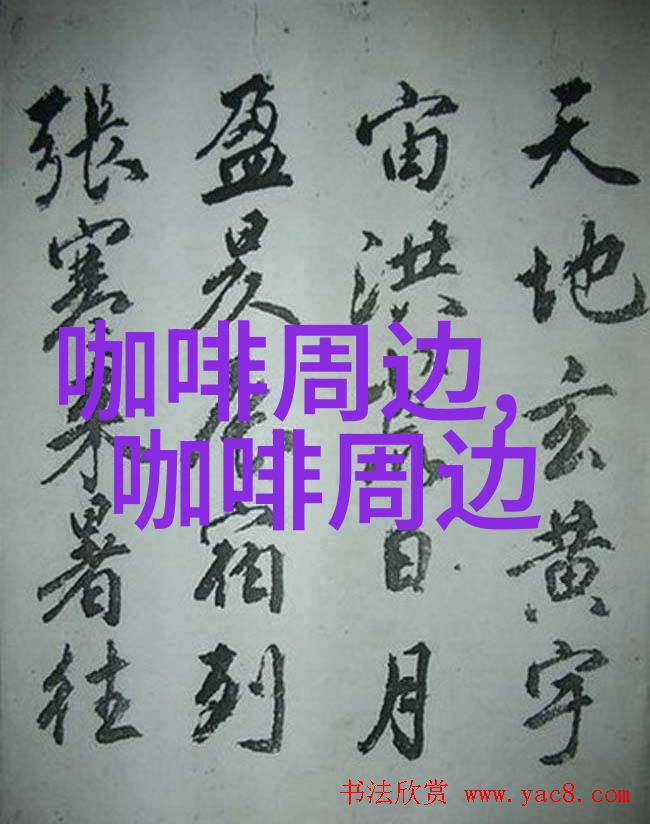 天地玄黄宇
宙洪荒日月
盈昃辰宿列
張寒来暑往
咖啡周边,
咖啡周边
书法欣赏 www.yac8.com